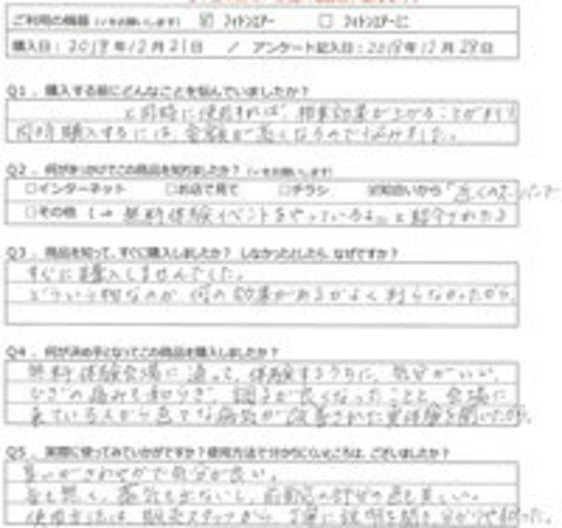 ご利用の機器（いをお願いします） ☑ フィトンエアー □ フィトンエアーミニ
購入日：2018年12月21日 / アンケート記入日：2018年12月28日
Q1．購入する前にどんなことを悩んでいましたか？
と同時に使用すれば、相乗効果が上がることがあり
同時購入するには、金額が高くなるので悩みました。
Q2．何がきっかけでこの商品を知りましたか？（いをお願いします）
□インターネット □お店で見て □チラシ ☑知合いから「近くの
□その他（→ 無料体験イベントをやっているよ」と紹介された
Q3．商品を知って、すぐに購入しましたか？ しなかったとしたら、なぜですか？
すぐに購入しませんでした。
どういう物なのか、何の効果があるかよく判らなかったから。
Q4．何が決め手となってこの商品を購入しましたか？
無料体験会場に通って、体験するうちに、気分がいい、
ひざの痛みも和らぎ、調子が良くなったことと、会場に
来ている人から色々な病気が改善された実体験を聞いたから。
Q5．実際に使ってみていかがですか？使用方法で分かりにくいところは、ございましたか？
香りがさわやかで気分が良い。
音も無く、蒸気も出ないし、
使用方法は、販売スタッフから、丁寧に説明を聞き分かり